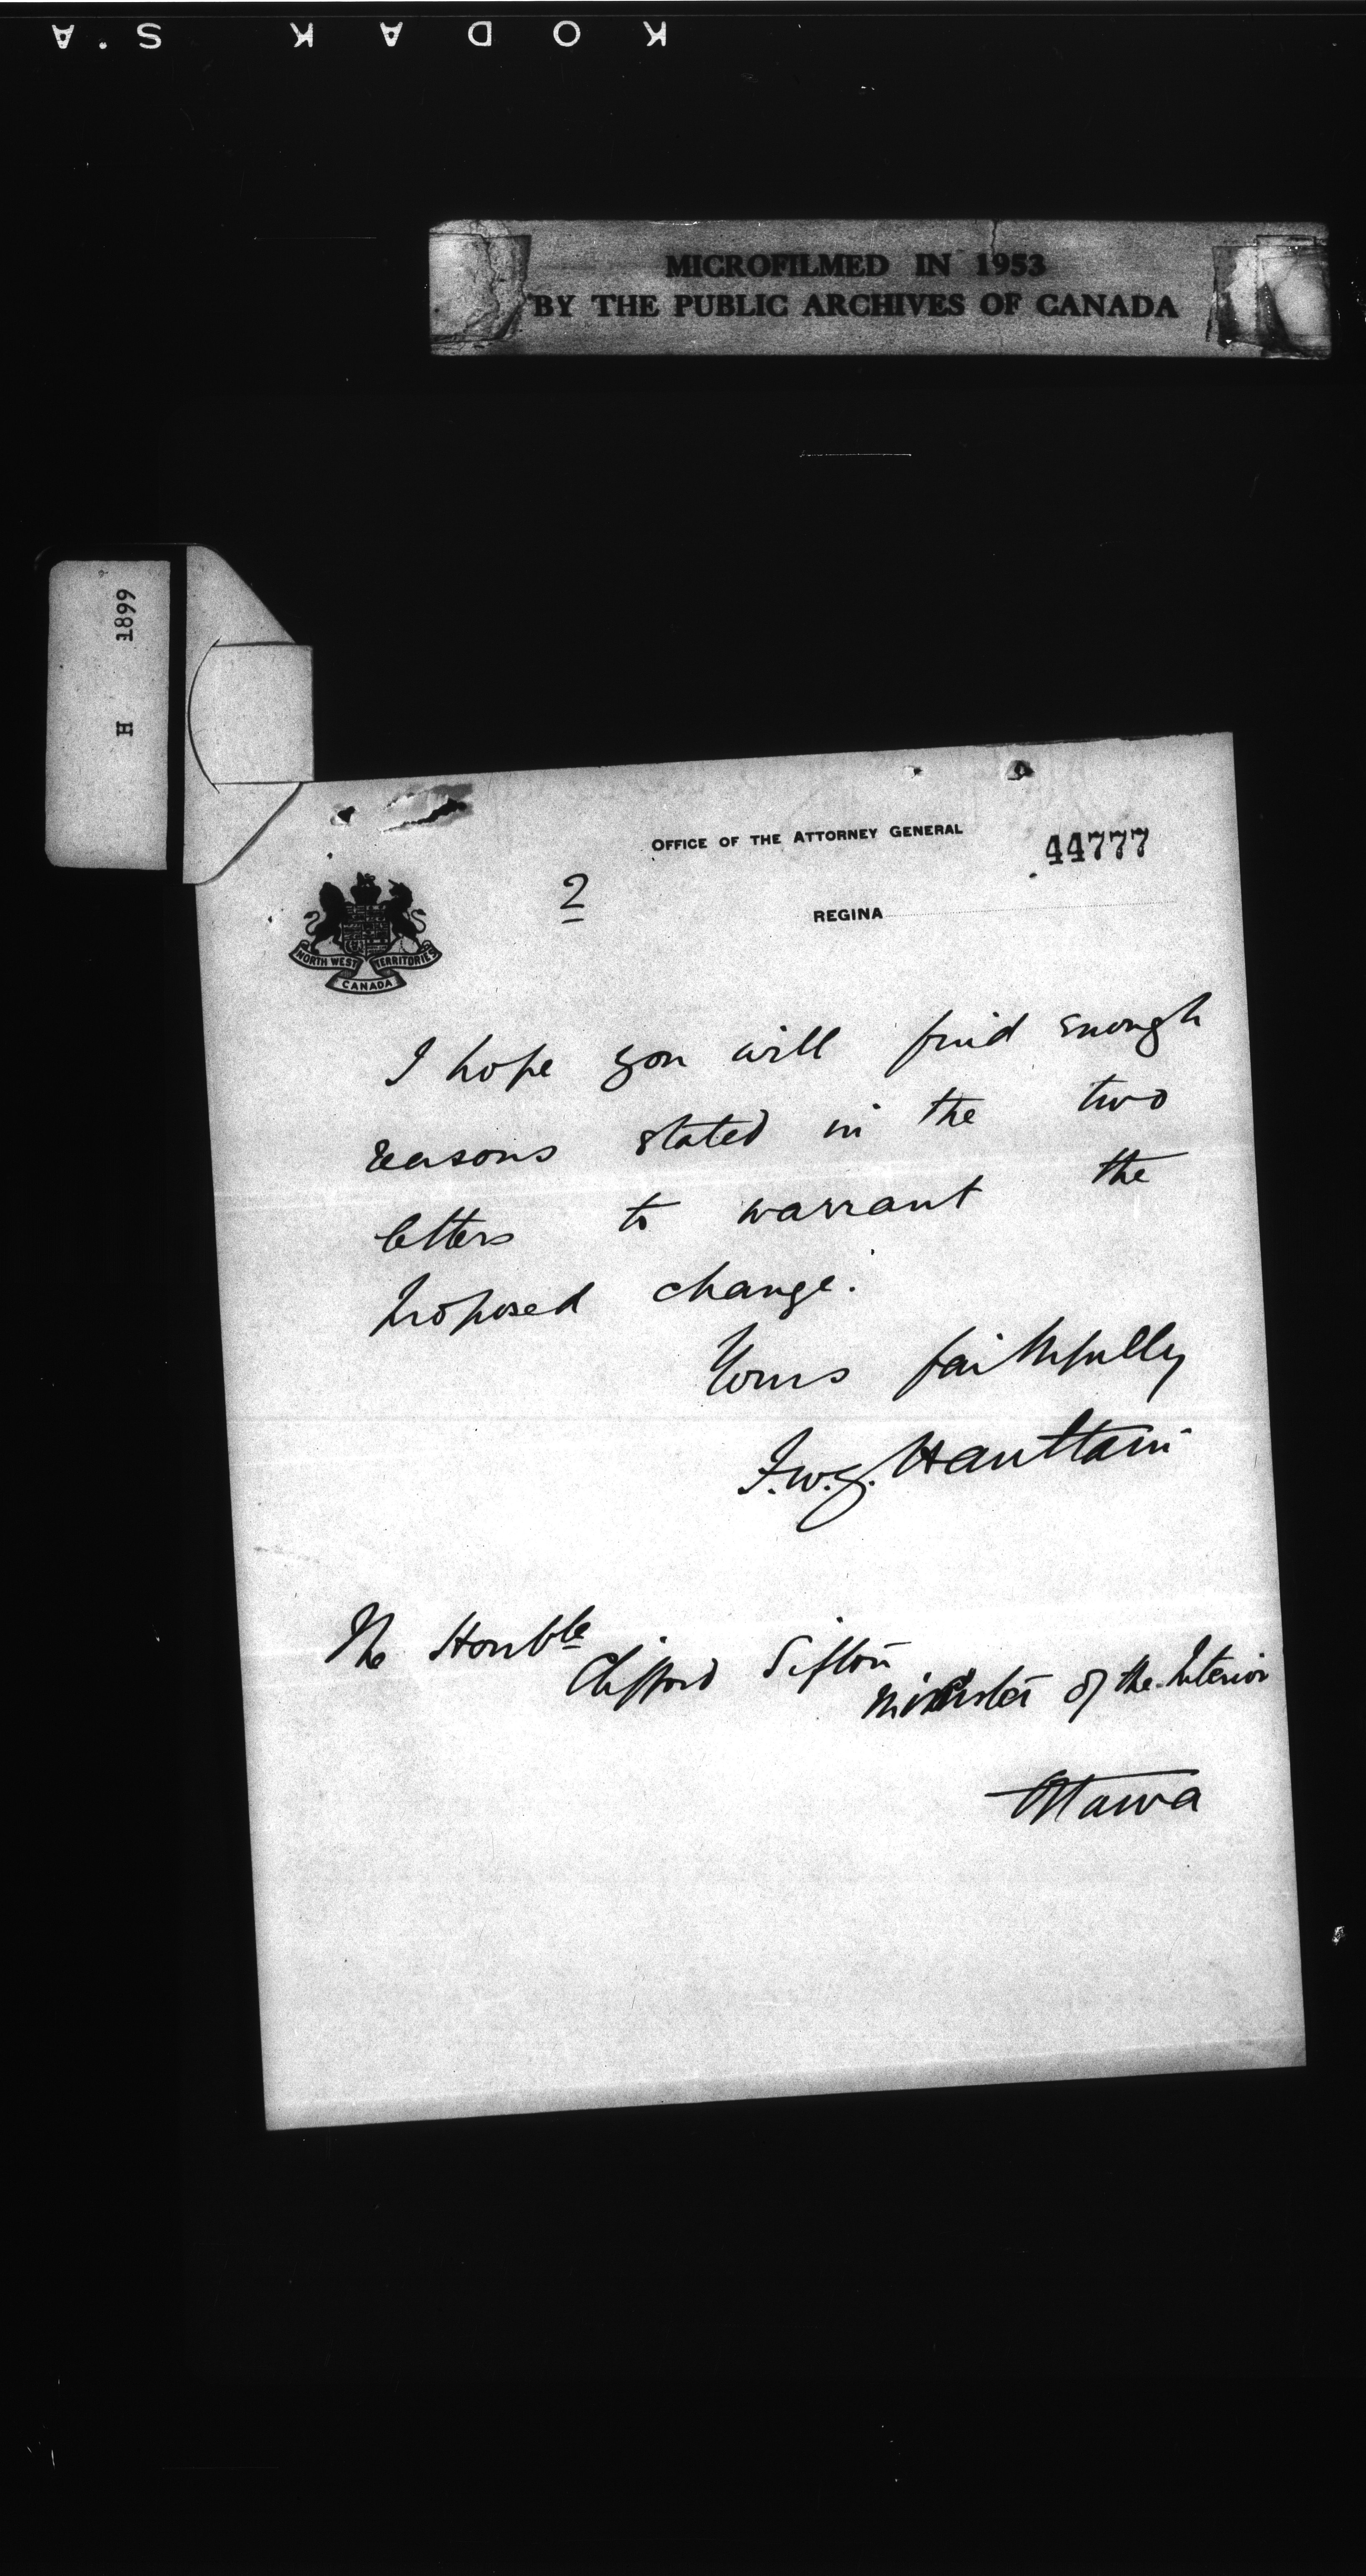 KODAK S.A
MICROFILMED IN 1953
BY THE PUBLIC ARCHIVES OF CANADA
H 1899
OFFICE OF THE ATTORNEY GENERAL
44777
2
REGINA
NORTH WEST TERRITORIES
CANADA
I hope you will find enough
reasons stated in the two
letters to warrant the
proposed change.
Yours faithfully
F.W.G. Haultain
The Honble
Clifford Sifton
Minister of the Interior
Ottawa